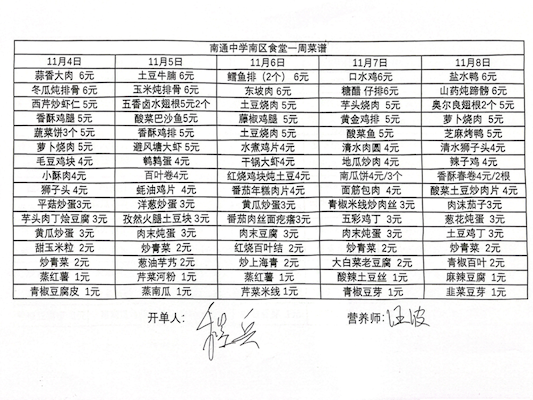 南通中学南区食堂一周菜谱
11月4日 11月5日 11月6日 11月7日 11月8日
蒜香大肉 6元 土豆牛腩 6元 鳕鱼排（2个）6元 口水鸡6元 盐水鸭 6元
冬瓜炖排骨 6元 玉米炖排骨 6元 东坡肉 6元 糖醋 仔排6元 山药炖蹄髈 6元
西芹炒虾仁 5元 五香卤水翅根5元2个 土豆烧肉 5元 芋头烧肉 5元 奥尔良翅根2个5元
香酥鸡腿 5元 酸菜巴沙鱼5元 藤椒鸡腿 5元 黄金鸡排 5元 萝卜烧肉 5元
蔬菜饼3个 5元 香酥鸡排 5元 土豆烧肉 5元 酸菜鱼 5元 芝麻烤鸭 5元
萝卜烧肉 5元 避风塘大虾 5元 水煮鸡片 4元 清水肉圆 4元 清水狮子头 4元
毛豆鸡块 4元 鹌鹑蛋 4元 干锅大虾4元 地瓜炒肉 4元 辣子鸡 4元
小酥肉4元 百叶卷4元 红烧鸡块炖土豆4元 南瓜饼4元/3个 香酥春卷4元/2根
狮子头 4元 蚝油鸡片 4元 番茄年糕肉片4元 面筋包肉 4元 酸菜土豆炒肉片 4元
平菇炒蛋3元 洋葱炒蛋 3元 黄瓜炒蛋 3元 青椒米线炒肉丝 3元 肉沫茄子 3元
芋头肉丁烩豆腐 3元 孜然火腿土豆块 3元 番茄肉丝面疙瘩3元 五彩鸡丁 3元 葱花炖蛋 3元
黄瓜炒蛋 3元 肉末炖蛋 3元 肉末豆腐 3元 肉末炖蛋 3元 土豆鸡丁 3元
甜玉米粒 2元 炒青菜 2元 红烧百叶结 2元 炒青菜 2元 炒青菜 2元
炒青菜 2元 葱油芋艿 2元 炒上海青 2元 大白菜老豆腐 2元 青椒百叶 2元
蒸红薯 1元 芹菜河粉 1元 蒸红薯 1元 酸辣土豆丝 1元 麻辣豆腐 1元
青椒豆腐皮 1元 蒸南瓜 1元 芹菜米线 1元 青椒豆芽 1元 韭菜豆芽 1元
开单人： 营养师：汪波